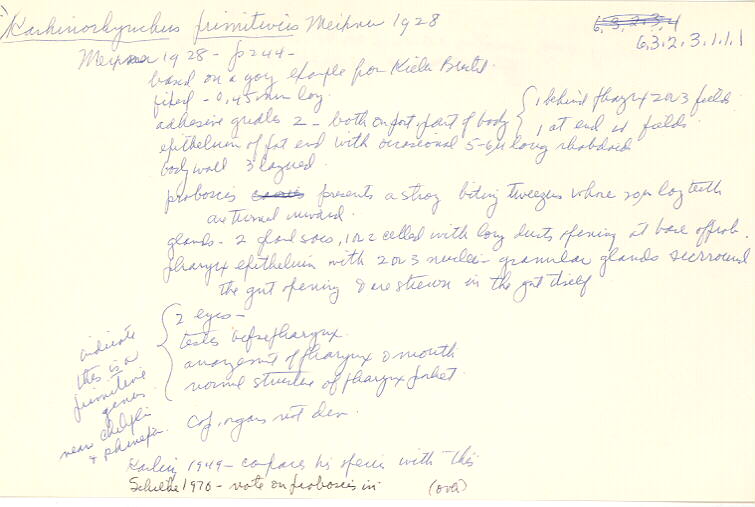 Karkinorhynchus primitivus Meixner 1928
6, 3, 2, 3, 4
6, 3, 2, 3, 1, 1, 1
Meixner 1928 - p 244 -
based on a young example from Kieler Bucht.
fixed - 0,45 mm long
adhesive girdles 2 - both on post. part of body { 1 behind pharynx 2 or 3 fields
1 at end 4 fields
epithelium of end with occasional 5-6µ long rhabdoid
body wall 3 layered
proboscis presents a strong biting tweezers whose 20µ long teeth
are turned inward.
glands - 2 gland sacs, 1 or 2 celled with long ducts opening at base of prob.
pharynx epithelium with 2 or 3 nuclei - granular glands surround
the gut opening & are strewn in the gut itself
2 eyes -
testes before pharynx
arrangement of pharynx & mouth
normal structure of pharynx pocket
indicate
this is a
primitive
genus
near
&
Cop. organs not dev.
Karling 1949 - compares his species with this
Schilke 1970 - note on proboscis in (over)